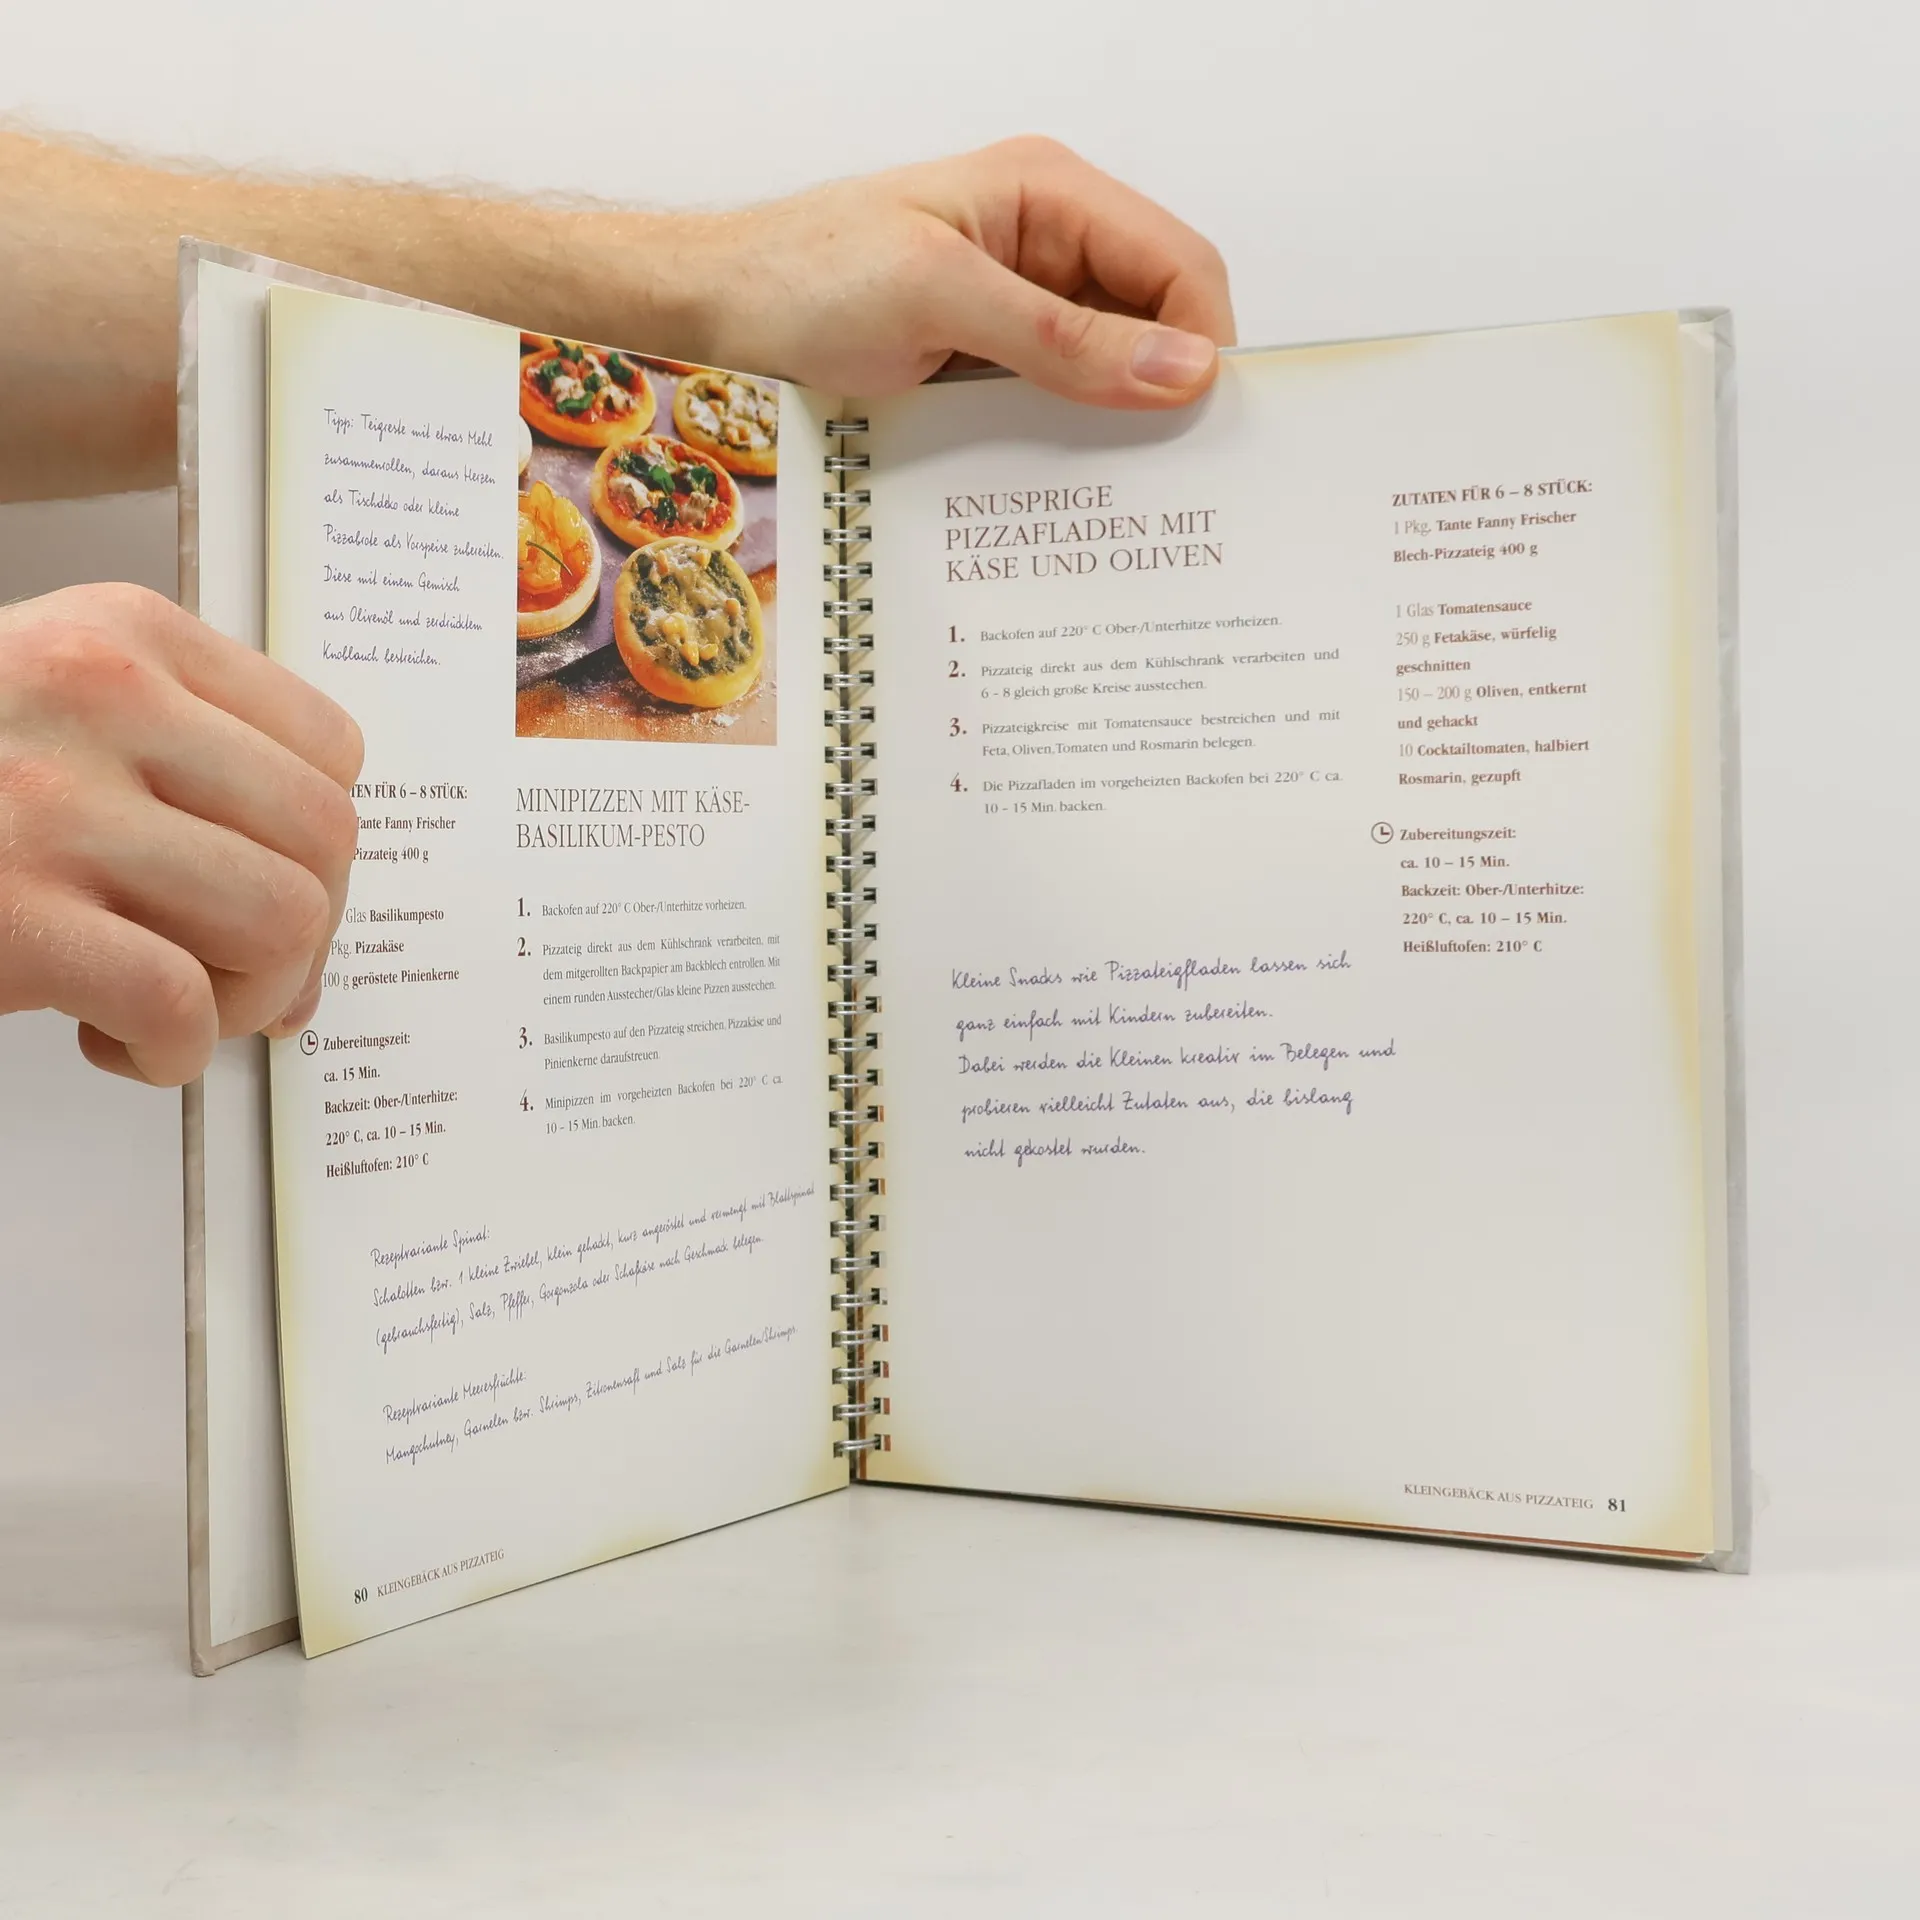 Tipp: Teigreste mit etwas Mehl
zusammenrollen, daraus Herzen
als Tischdeko oder kleine
Pizzabrote als Vorspeise zubereiten.
Diese mit einem Gemisch
aus Olivenöl und zerdrücktem
Knoblauch bestreichen.
TEN FÜR 6 – 8 STÜCK:
Tante Fanny Frischer
Pizzateig 400 g
Glas Basilikumpesto
Pkg. Pizzakäse
100 g geröstete Pinienkerne
Zubereitungszeit:
ca. 15 Min.
Backzeit: Ober-/Unterhitze:
220° C, ca. 10 – 15 Min.
Heißluftofen: 210° C
MINIPIZZEN MIT KÄSE-
BASILIKUM-PESTO
1. Backofen auf 220° C Ober-/Unterhitze vorheizen.
2. Pizzateig direkt aus dem Kühlschrank verarbeiten, mit
dem mitgerollten Backpapier am Backblech entrollen. Mit
einem runden Ausstecher/Glas kleine Pizzen ausstechen.
3. Basilikumpesto auf den Pizzateig streichen, Pizzakäse und
Pinienkerne daraufstreuen.
4. Minipizzen im vorgeheizten Backofen bei 220° C ca.
10 – 15 Min. backen.
Rezeptvariante Spinat:
Schalotten bzw. 1 kleine Zwiebel, klein gehackt, kurz angeröstet und vermengt mit Blattspinat
(gebrauchsfertig), Salz, Pfeffer, Gorgonzola oder Schafkäse nach Geschmack belegen.
Rezeptvariante Meeresfrüchte:
Mangochutney, Garnelen bzw. Shrimps, Zitronensaft und Salz für die Garnelen/Shrimps
80 KLEINGEBÄCK AUS PIZZATEIG
KNUSPRIGE
PIZZAFLADEN MIT
KÄSE UND OLIVEN
1. Backofen auf 220° C Ober-/Unterhitze vorheizen.
2. Pizzateig direkt aus dem Kühlschrank verarbeiten und
6 – 8 gleich große Kreise ausstechen.
3. Pizzateigkreise mit Tomatensauce bestreichen und mit
Feta, Oliven, Tomaten und Rosmarin belegen.
4. Die Pizzafladen im vorgeheizten Backofen bei 220° C ca.
10 – 15 Min. backen.
ZUTATEN FÜR 6 – 8 STÜCK:
1 Pkg. Tante Fanny Frischer
Blech-Pizzateig 400 g
1 Glas Tomatensauce
250 g Fetakäse, würfelig
geschnitten
150 – 200 g Oliven, entkernt
und gehackt
10 Cocktailtomaten, halbiert
Rosmarin, gezupft
Zubereitungszeit:
ca. 10 – 15 Min.
Backzeit: Ober-/Unterhitze:
220° C, ca. 10 – 15 Min.
Heißluftofen: 210° C
Kleine Snacks wie Pizzateigfladen lassen sich
ganz einfach mit Kindern zubereiten.
Dabei werden die Kleinen kreativ im Belegen und
probieren vielleicht Zutaten aus, die bislang
nicht gekostet wurden.
KLEINGEBÄCK AUS PIZZATEIG 81